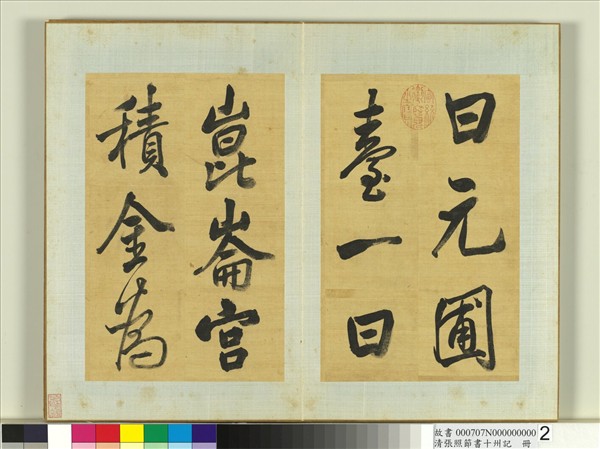 曰元圃
臺一曰
崑崙宮
積金為
故書 000707N000000000
清張照節書十州記 冊
2